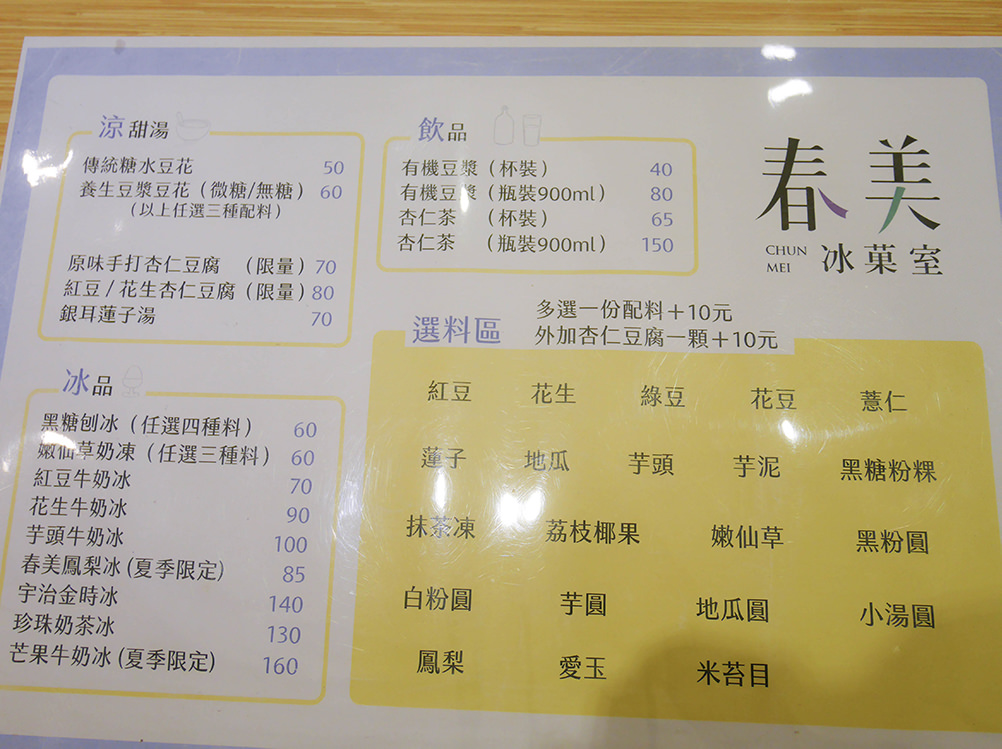 春美
CHUN
MEI
冰菓室
涼甜湯
傳統糖水豆花 50
養生豆漿豆花（微糖/無糖） 60
（以上任選三種配料）
原味手打杏仁豆腐 （限量） 70
紅豆/花生杏仁豆腐（限量） 80
銀耳蓮子湯 70
飲品
有機豆漿（杯裝） 40
有機豆漿（瓶裝900ml） 80
杏仁茶 （杯裝） 65
杏仁茶 （瓶裝900ml） 150
冰品
黑糖刨冰（任選四種料） 60
嫩仙草奶凍（任選三種料） 60
紅豆牛奶冰 70
花生牛奶冰 90
芋頭牛奶冰 100
春美鳳梨冰(夏季限定) 85
宇治金時冰 140
珍珠奶茶冰 130
芒果牛奶冰(夏季限定) 160
選料區
多選一份配料＋10元
外加杏仁豆腐一顆＋10元
紅豆 花生 綠豆 花豆 薏仁
蓮子 地瓜 芋頭 芋泥 黑糖粉粿
抹茶凍 荔枝椰果 嫩仙草 黑粉圓
白粉圓 芋圓 地瓜圓 小湯圓
鳳梨 愛玉 米苔目